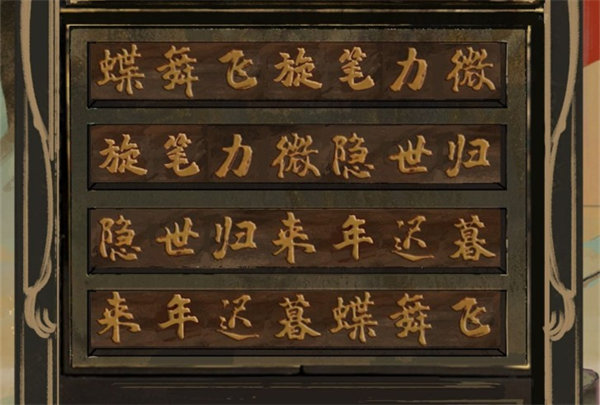 蝶舞飞旋笔力微
旋笔力微隐世归
隐世归来年迟暮
来年迟暮蝶舞飞